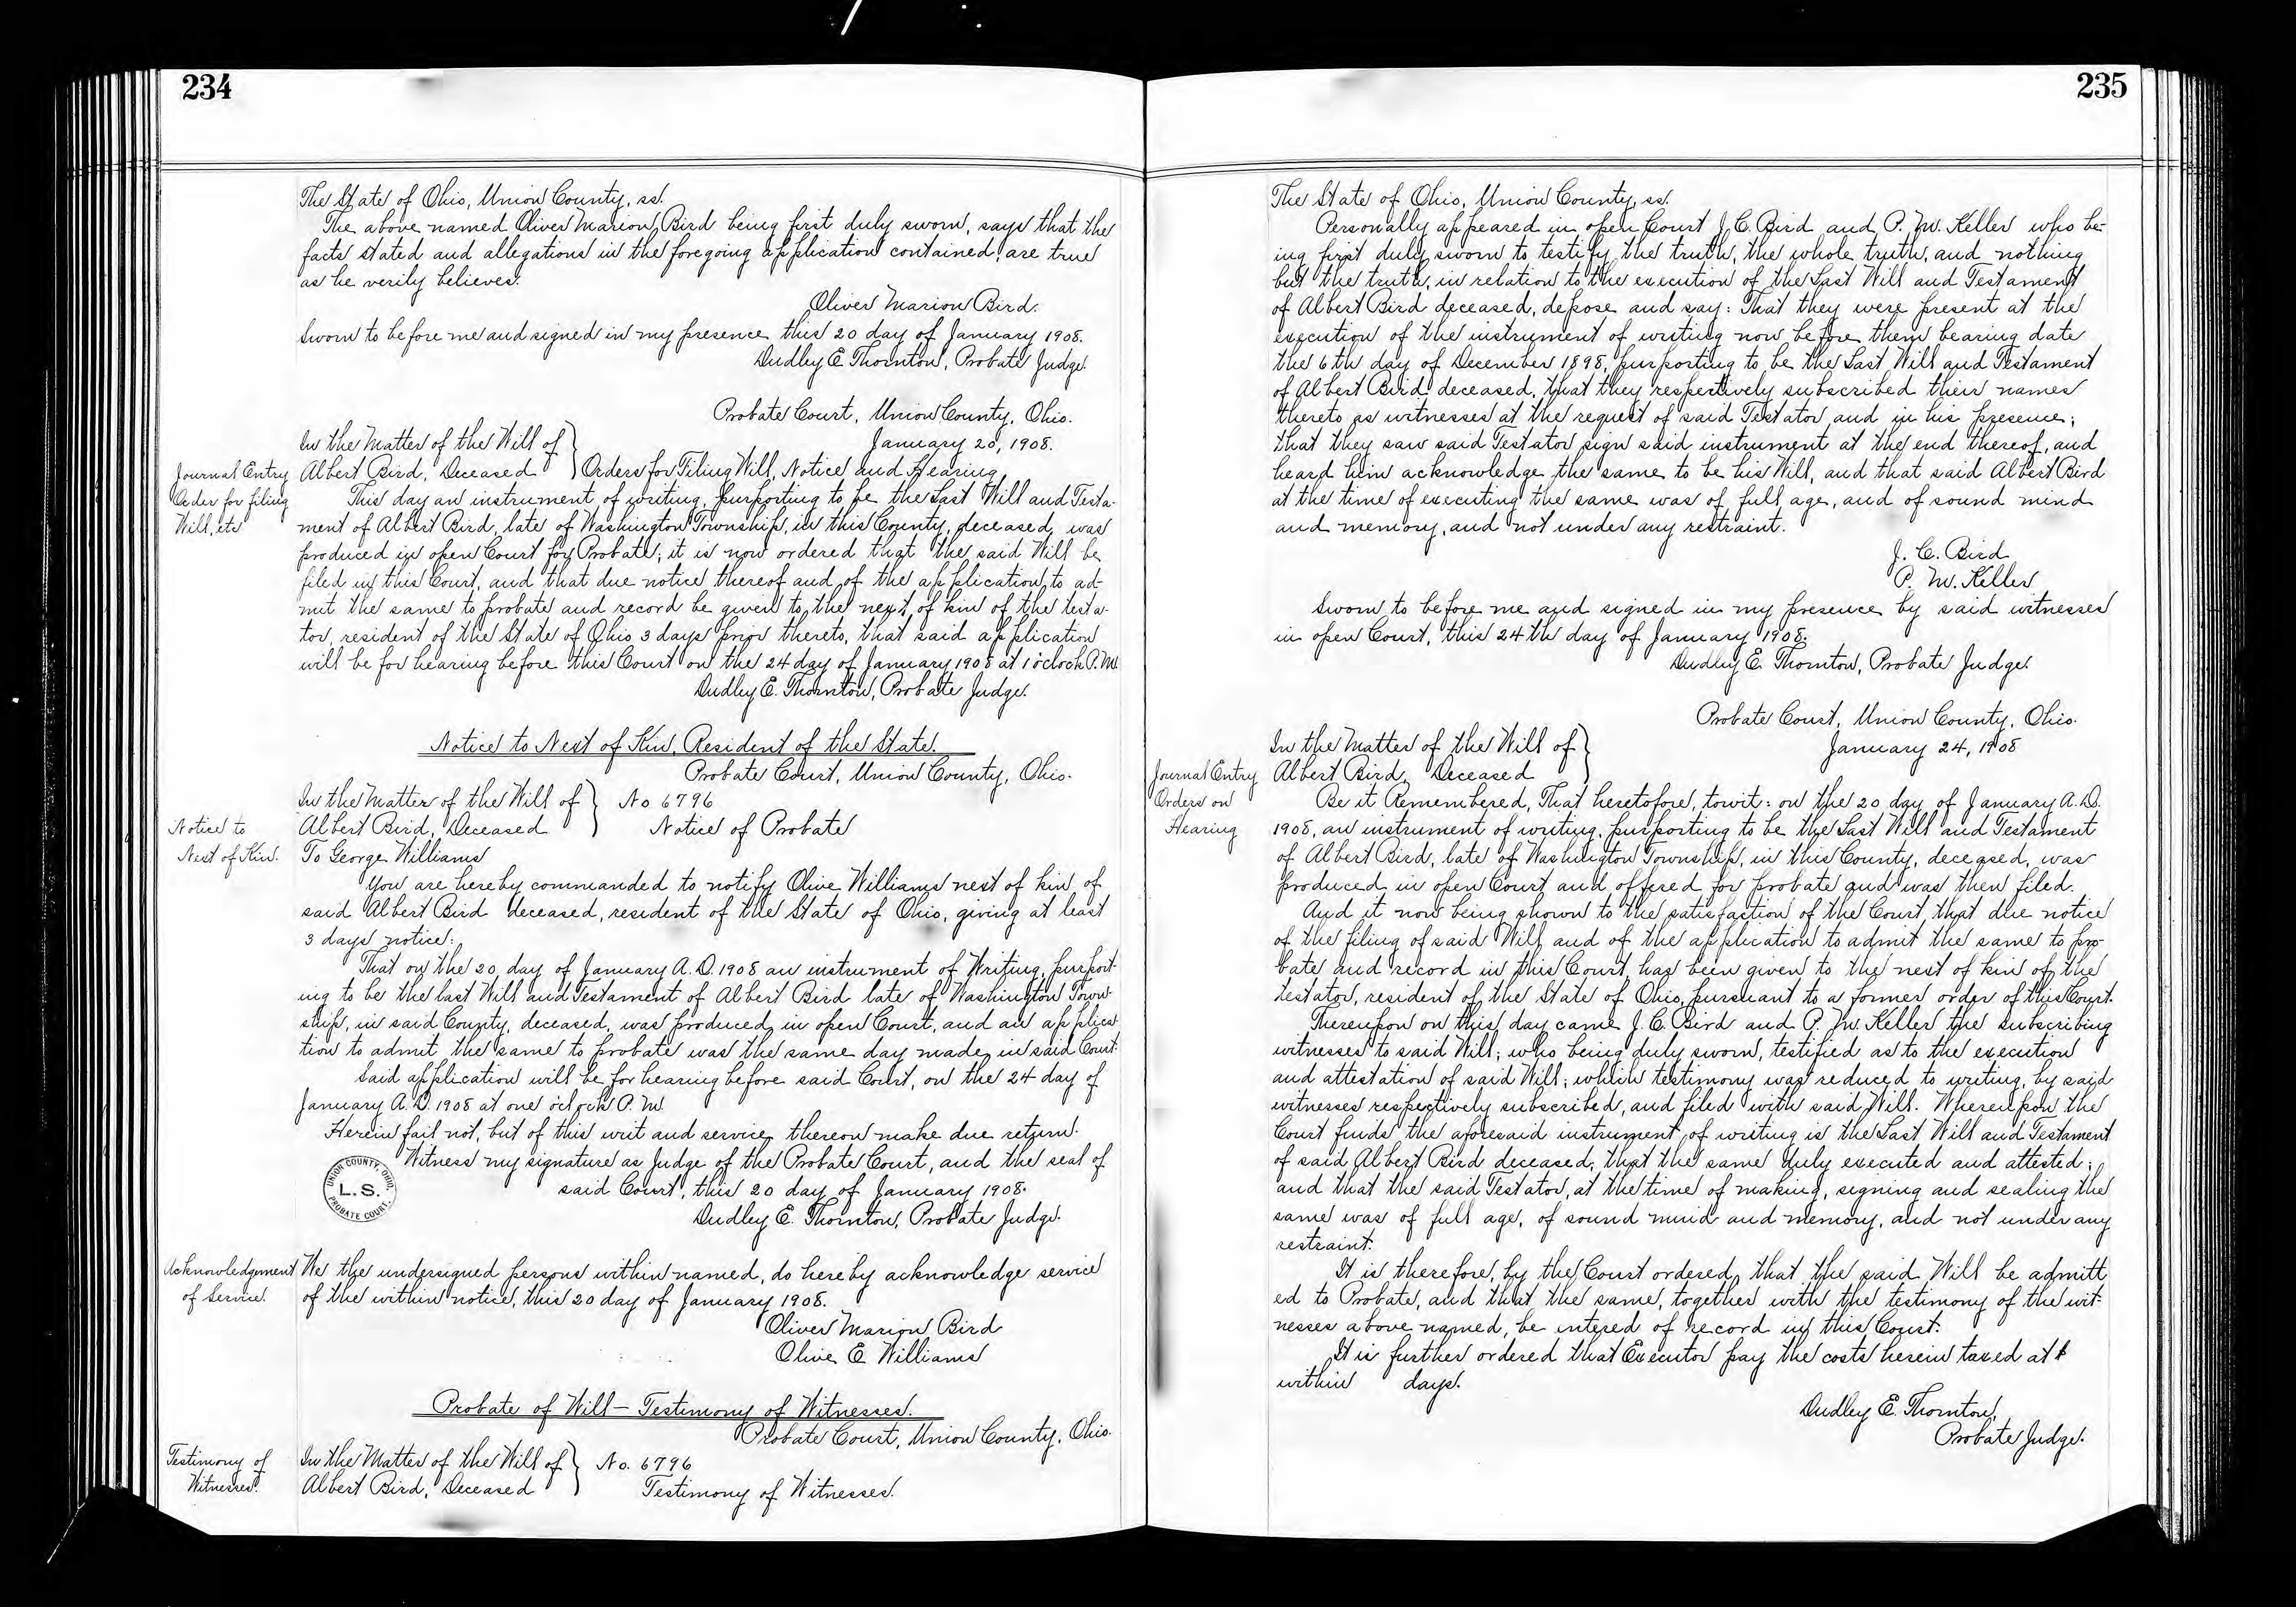 234
The State of Ohio, Union County, ss.
The above named Oliver Marion Bird being first duly sworn, says that the
facts stated and allegations in the foregoing application contained, are true
as he verily believes.
Oliver Marion Bird.
Sworn to before me and signed in my presence this 20 day of January 1908.
Dudley E. Thornton, Probate Judge.
Probate Court, Union County, Ohio.
January 20, 1908.
In the Matter of the Will of
Journal Entry
Order for filing
Will, etc
Albert Bird, Deceased } Orders for Filing Will, Notice and Hearing
This day an instrument of writing, purporting to be the Last Will and Testa-
ment of Albert Bird, late of Washington Township, in this County, deceased, was
produced in open Court for Probate; it is now ordered that the said Will be
filed in this Court, and that due notice thereof and of the application to ad-
mit the same to probate and record be given to the next of kin of the testa-
tor, resident of the State of Ohio 3 days prior thereto, that said application
will be for hearing before this Court on the 24 day of January 1908 at 1 o'clock P.M.
Dudley E. Thornton, Probate Judge.
Notice to Next of Kin, Resident of the State.
Probate Court, Union County, Ohio.
In the Matter of the Will of } No 6796
Notice to
Next of Kin.
Albert Bird, Deceased Notice of Probate
To George Williams
You are hereby commanded to notify Olive Williams next of kin of
said Albert Bird deceased, resident of the State of Ohio, giving at least
3 days notice:
That on the 20 day of January A. D. 1908 an instrument of Writing, purport-
ing to be the last Will and Testament of Albert Bird late of Washington Town-
ship, in said County, deceased, was produced in open Court, and an applica-
tion to admit the same to probate was the same day made in said Court.
Said application will be for hearing before said Court, on the 24 day of
January A. D. 1908 at one o'clock P. M.
Herein fail not, but of this writ and service thereon make due return.
Witness my signature as Judge of the Probate Court, and the seal of
UNION COUNTY, OHIO.
L.S.
PROBATE COURT.
said Court, this 20 day of January 1908.
Dudley E. Thornton, Probate Judge.
Acknowledgement
of Service.
We the undersigned persons within named, do hereby acknowledge service
of the within notice, this 20 day of January 1908.
Oliver Marion Bird
Olive E Williams
Probate of Will — Testimony of Witnesses.
Probate Court, Union County, Ohio.
Testimony of
Witnesses.
In the Matter of the Will of } No. 6796
Albert Bird, Deceased Testimony of Witnesses.
235
The State of Ohio, Union County, ss.
Personally appeared in open Court J. C. Bird and P. W. Keller who be-
ing first duly sworn to testify the truth, the whole truth, and nothing
but the truth, in relation to the execution of the Last Will and Testament
of Albert Bird deceased, depose and say: That they were present at the
execution of the instrument of writing now before them bearing date
the 6th day of December 1898, purporting to be the Last Will and Testament
of Albert Bird deceased, that they respectively subscribed their names
thereto as witnesses at the request of said Testator and in his presence;
that they saw said Testator sign said instrument at the end thereof, and
heard him acknowledge the same to be his Will, and that said Albert Bird
at the time of executing the same was of full age, and of sound mind
and memory, and not under any restraint.
J. C. Bird
P. W. Keller
Sworn to before me and signed in my presence by said witnesses
in open Court, this 24th day of January 1908.
Dudley E. Thornton, Probate Judge.
Probate Court, Union County, Ohio.
In the Matter of the Will of } January 24, 1908
Journal Entry
Orders on
Hearing
Albert Bird, Deceased
Be it Remembered, That heretofore, towit: on the 20 day of January A. D.
1908, an instrument of writing, purporting to be the Last Will and Testament
of Albert Bird, late of Washington Township, in this County, deceased, was
produced in open Court and offered for probate and was then filed.
And it now being shown to the satisfaction of the Court, that due notice
of the filing of said Will and of the application to admit the same to pro-
bate and record in this Court, has been given to the next of kin of the
testator, resident of the State of Ohio, pursuant to a former order of this Court.
Thereupon on this day came J. C. Bird and P. W. Keller the subscribing
witnesses to said Will; who being duly sworn, testified as to the execution
and attestation of said Will; which testimony was reduced to writing, by said
witnesses respectively subscribed, and filed with said Will. Whereupon the
Court finds the aforesaid instrument of writing is the Last Will and Testament
of said Albert Bird deceased; that the same duly executed and attested;
and that the said Testator, at the time of making, signing and sealing the
same was of full age, of sound mind and memory, and not under any
restraint.
It is therefore, by the Court ordered, that the said Will be admitt
ed to Probate, and that the same, together with the testimony of the wit-
nesses above named, be entered of record in this Court.
It is further ordered that Executor pay the costs herein taxed at $
within days.
Dudley E. Thornton,
Probate Judge.